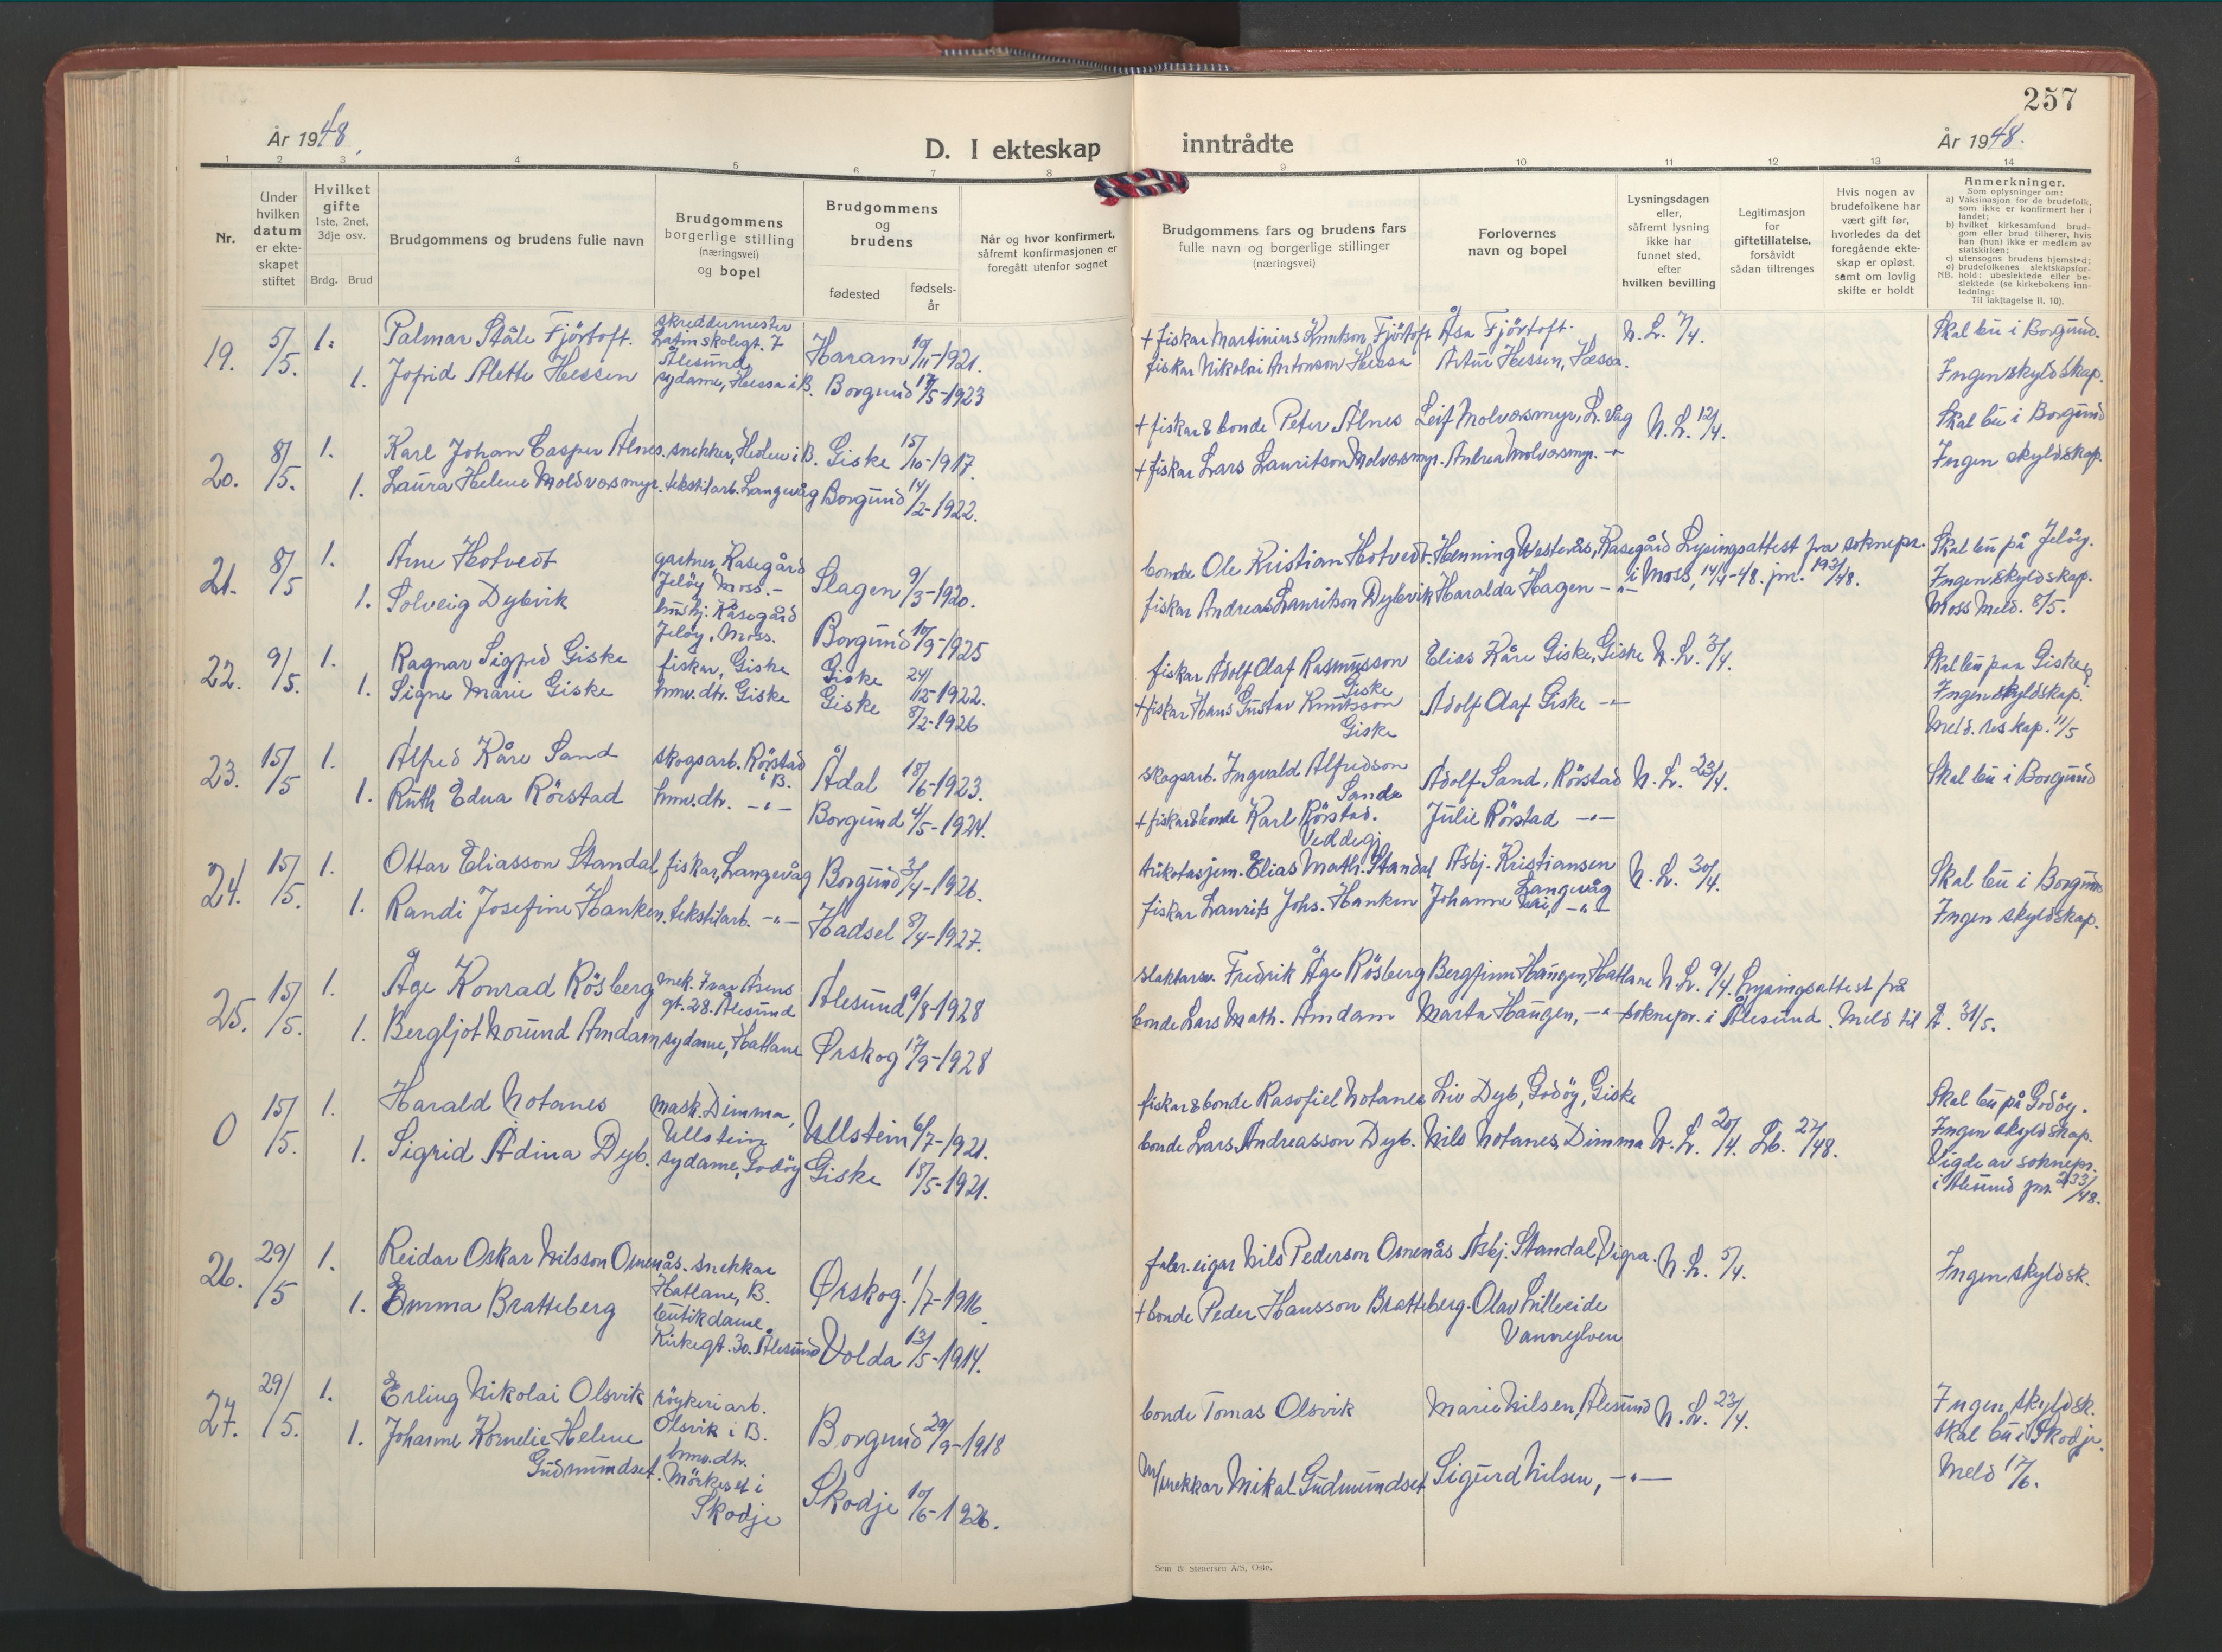 257
År 1948.
D. I ekteskap
inntrådte
År 1948.
1 2 3 4 5 6 7 8 9 10 11 12 13 14
Nr.
Under
hvilken
datum
er ekte-
skapet
stiftet
Hvilket
gifte
1ste, 2net,
3dje osv.
Brdg. Brud
Brudgommens og brudens fulle navn
Brudgommens
borgerlige stilling
(næringsvei)
og bopel
Brudgommens
og
brudens
fødested
fødsels-
år
Når og hvor konfirmert,
såfremt konfirmasjonen er
foregått utenfor sognet
Brudgommens fars og brudens fars
fulle navn og borgerlige stillinger
(næringsvei)
Forlovernes
navn og bopel
Lysningsdagen
eller,
såfremt lysning
ikke har
funnet sted,
efter
hvilken bevilling
Legitimasjon
for
giftetillatelse,
forsåvidt
sådan tiltrenges
Hvis nogen av
brudefolkene har
vært gift før,
hvorledes da det
foregående ekte-
skap er opløst,
samt om lovlig
skifte er holdt
Anmerkninger.
Som oplysninger om:
a) Vaksinasjon for de brudefolk,
som ikke er konfirmert her i
landet;
b) hvilket kirkesamfund brud-
gom eller brud tilhører, hvis
han (hun) ikke er medlem av
statskirken;
c) utensogns brudens hjemsted;
d) brudefolkenes slektskapsfor-
NB. hold: ubeslektede eller be-
slektede (se kirkebokens inn-
ledning:
Til iakttagelse II. 10).
19. 5/5. 1. Palmar Ståle Fjörtoft. skreddermester
Latinskolegt. 7
Ålesund Haram 19/11-1921.
1. Jofrid Alette Hessen sydame, Hessa i B. Borgund 17/5-1923
+ fiskar Martinius Knutson Fjörtoft Åsa Fjörtoft. N. L. 7/4. Skal bu i Borgund.
fiskar Nikolai Antonson Hessa Artur Hessen, Hessa. Ingen skyldskap.
20. 8/5. 1. Karl Johan Casper Alnes. snekker, Hedin i B. Giske 15/10-1917.
1. Laura Helene Moldværsmyr. tekstilarb. Langevåg Borgund 14/2-1922.
+ fiskar & bonde Peter Alnes Leif Molværsmyr, L. våg N. L. 12/4. Skal bu i Borgund
+ fiskar Lars Lauritson Molværsmyr. Andrea Molværsmyr. -"- Ingen skyldskap.
21. 8/5 1. Arne Hotvedt gartner, Kasegård
Jeløy, Moss. Slagen 9/3-1920.
1. Solveig Dybvik hushj. Kasegård
Jeløy, Moss. Borgund 10/9-1925
bonde Ole Kristian Hotvedt. Henning Westerås, Kasegård Lysingsattest fra soknepr. Skal bu på Jelöy.
i Moss, 14/4-48. jnr. 193/48. Ingen skyldskap.
fiskar Andreas Lauritson Dybvik Haralda Hagen -"- Moss Meld. 8/5.
22. 9/5. 1. Ragnar Sigfred Giske fiskar, Giske Giske 24/12-1922.
1. Signe Marie Giske hmv. dtr. Giske Giske 8/2-1926
fiskar Adolf Olaf Rasmusson
Giske Elias Kåre Giske, Giske N. L. 3/4. Skal bu paa Giske
+ fiskar Hans Gustav Knutsson
Giske Adolf Olaf Giske -"- Ingen skyldskap.
Meld. 11/5
23. 15/5 1. Alfred Kåre Sand skogsarb. Rörstad
i B. Ådal 18/6-1923.
1. Ruth Edna Rörstad hmv. dtr. -"- Borgund 4/5-1924.
skogsarb. Ingvald Alfredson
Sande Adolf Sand, Rörstad N. L. 23/4. Skal bu i Borgund
+ fiskar & bonde Karl Rörstad. Julie Rörstad -"-
24. 15/5. 1. Ottar Eliasson Standal fiskar, Langevåg Borgund 3/4-1926.
1. Randi Josefine Hanken. tekstilarb. -"- Hadsel 8/4-1927.
trikotasjem. Elias Math. Standal Asbj. Kristiansen
Langevåg N. L. 30/4. Skal bu i Borgund
fiskar Laurits Johs. Hanken Johanne -"- Ingen skyldskap.
25. 15/5. 1. Åge Konrad Rösberg mek. Ivar Åsens
gt. 28. Ålesund Ålesund 9/8-1928
1. Bergljot Norunn Amdam sydame, Hatlane Ørskog 17/9-1928
Fredrik Åge Rösberg Bergfinn Haugen, Hatlane N. L. 9/4. Lysingsattest frå
bonde Lars Math. Amdam Marta Haugen, -"- soknepr. i Ålesund. Meld til Å. 31/5.
0 15/5. 1. Harald Notanes mask. Dimma,
Ullstein Ullstein 6/7-1921.
1. Sigrid Adina Dyb. sydame, Godöy Giske 18/5-1921.
fiskar & bonde Rasofiel Notanes Liv Dyb, Godöy, Giske Skal bu på Godöy.
bonde Lars Andreasson Dyb. Nils Notanes, Dimma N. L. 20/4. Lb. 27/48. Ingen skyldskap.
Vigde av soknepr.
i Ålesund jnr. 233/48.
26. 29/5 1. Reidar Oskar Nilsson Omenås. snekkar
Hatlane, B. Ørskog. 1/7-1916.
1. Emma Bratteberg butikdame.
Kirkegt. 30. Ålesund Volda 13/5-1914.
fabr. eigar Nils Pederson Omenås Asbj. Standal, Vigra. N. L. 5/4. Ingen skyldsk.
+ bonde Peder Hansson Bratteberg. Olav Lilleeide
Vannylven
27. 29/5. 1. Erling Nikolai Olsvik röykeriarb.
Olsvik i B. Borgund 29/9-1918
1. Johanne Kornelie Helene
Gudmundset. hmv. dtr.
Mörkeset i
Skodje Skodje 10/6-1926.
bonde Tomas Olsvik Marie Nilsen, Ålesund N. L. 23/4. Ingen skyldsk.
skal bu i Skodje.
m/snekkar Mikal Gudmundset Sigurd Nilsen, -"- Meld 17/6.
Sem & Stenersen A/S, Oslo.